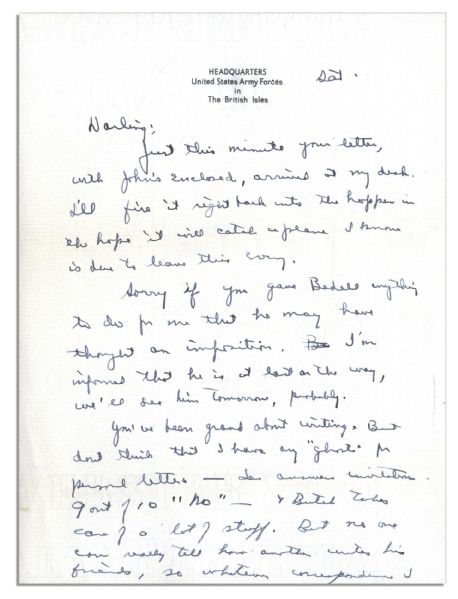 HEADQUARTERS
United States Army Forces
in
The British Isles
Sat.
Darling:
Just this minute your letter,
with John's enclosed, arrived at my desk.
I'll fire it right back into the hopper in
the hope it will catch a plane I know
is due to leave this evng.
Sorry if you gave Bedell anything
to do for me that he may have
thought an imposition. I'm
informed that he is at last on the way,
we'll see him tomorrow, probably.
You've been grand about writing. But
don't think that I have any "ghosts" for
personal letters — answer invitations
9 out of 10 "No" — & Butch takes
care of a lot of stuff. But no one
can really tell how another writes his
friends, so whatever correspondence I